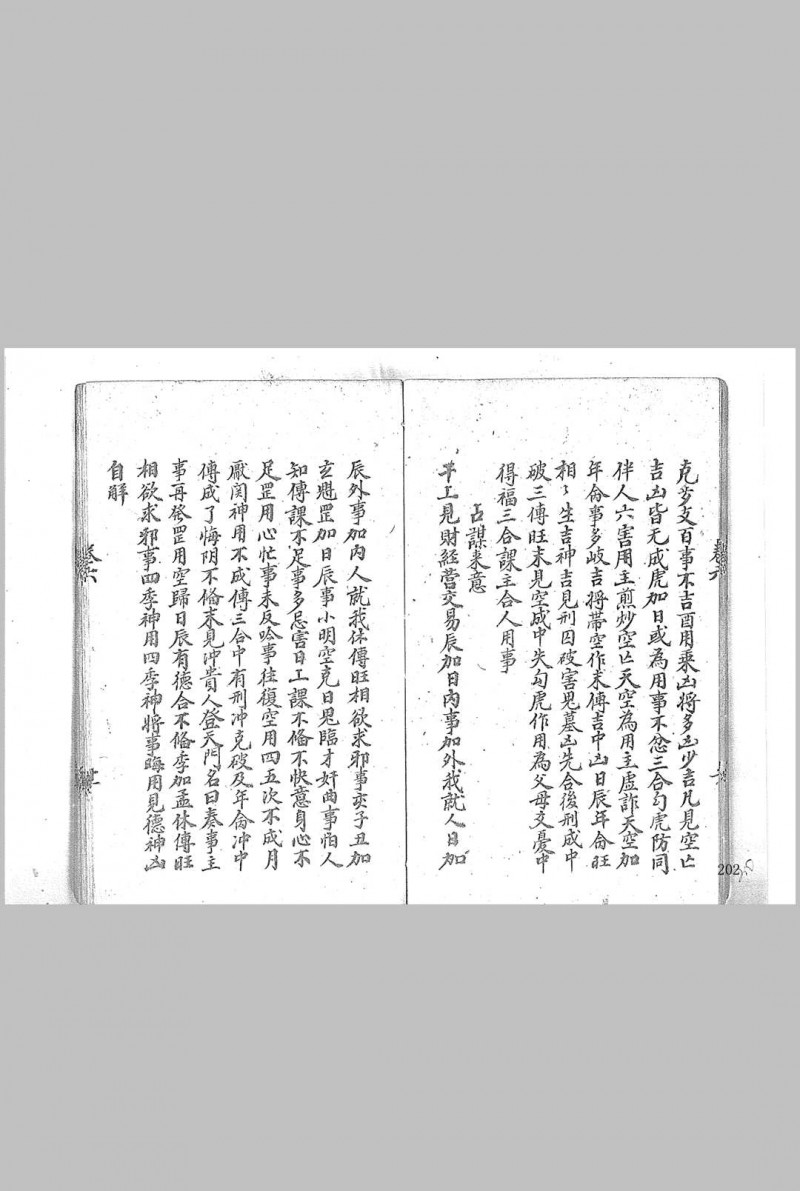 克岁支百事不吉酉用乘凶將多凶少吉凡見空亡
吉凶皆无成虎加日或為用事不忿三合勾虎防同
伴人六害用主煎炒空亡天空為用主虛詐天空加
年命事多歧吉將帶空作末傳吉中凶日辰年命旺
相〻生吉神吉見刑囚破害見墓凶先合後刑成中
破三傳旺末見空成中失勾虎作用為父母交憂中
得福三合課主合人用事
占謀来意
工見財經營交易辰加日內事加外我就人日加
卷六
辰外事加內人就我休傳旺相欲求邪事亥子丑加
玄魁罡加日辰事小明空克日鬼臨才奸曲事怕人
知傳課不足事多忌害日工課不偹不快意身心不
足罡用心忙事未反吟事往復空用四五次不成月
厭関神用不成傳三合中有刑冲克破及年命冲中
傳成了悔陰不偹末見冲貴人登天門名曰奏事主
事再發罡用空歸日辰有德合不偹季加孟休傳旺
相欲求邪事四季神用四季神將事晦用見德神凶
自解
卷六
202